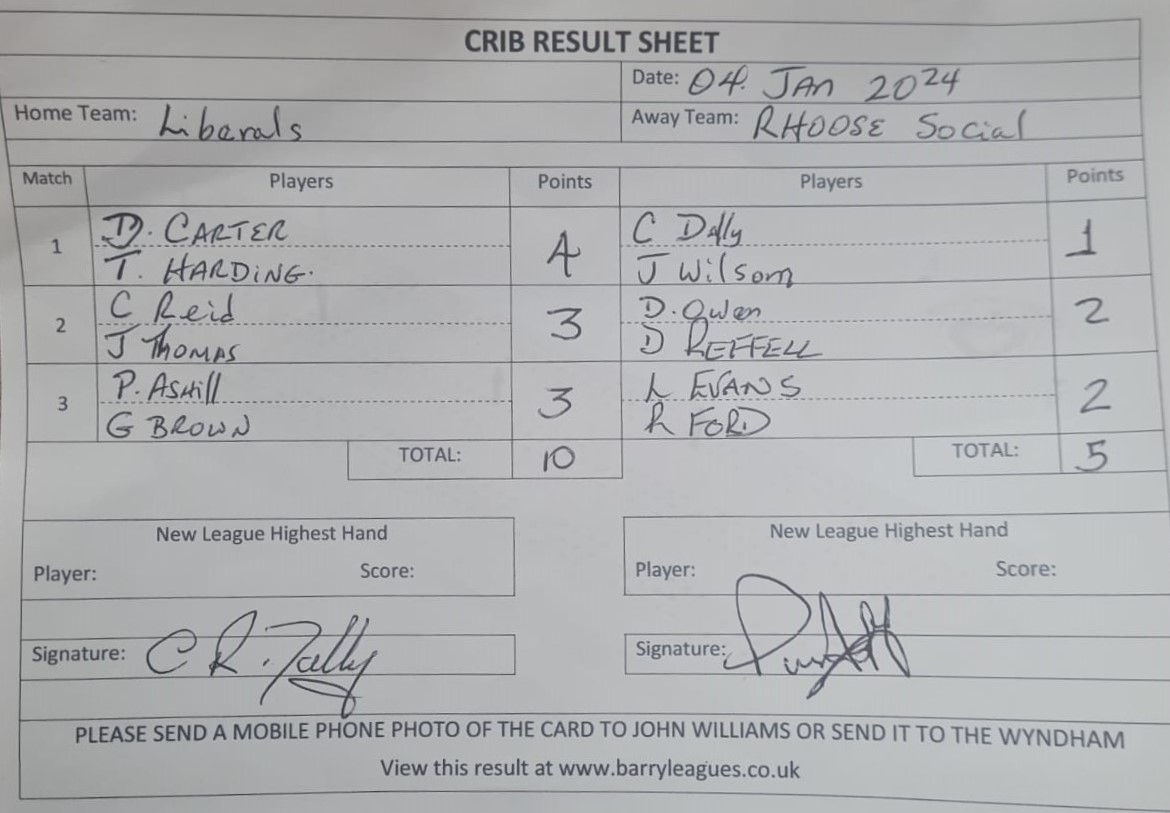 CRIB RESULT SHEET
Date: 04. JAN 2024
Home Team: Liberals
Away Team: RHOOSE Social
Match Players Points Players Points
1 D. CARTER 4 C Dally 1
T. HARDING. J Wilsom
2 C Reid 3 D. Owen 2
J THOMAS D REFFELL
3 P. AsHill 3 L EVANS 2
G BROWN R FORD
TOTAL: 10 TOTAL: 5
New League Highest Hand New League Highest Hand
Player: Score: Player: Score:
Signature: C R. Signature:
PLEASE SEND A MOBILE PHONE PHOTO OF THE CARD TO JOHN WILLIAMS OR SEND IT TO THE WYNDHAM
View this result at www.barryleagues.co.uk